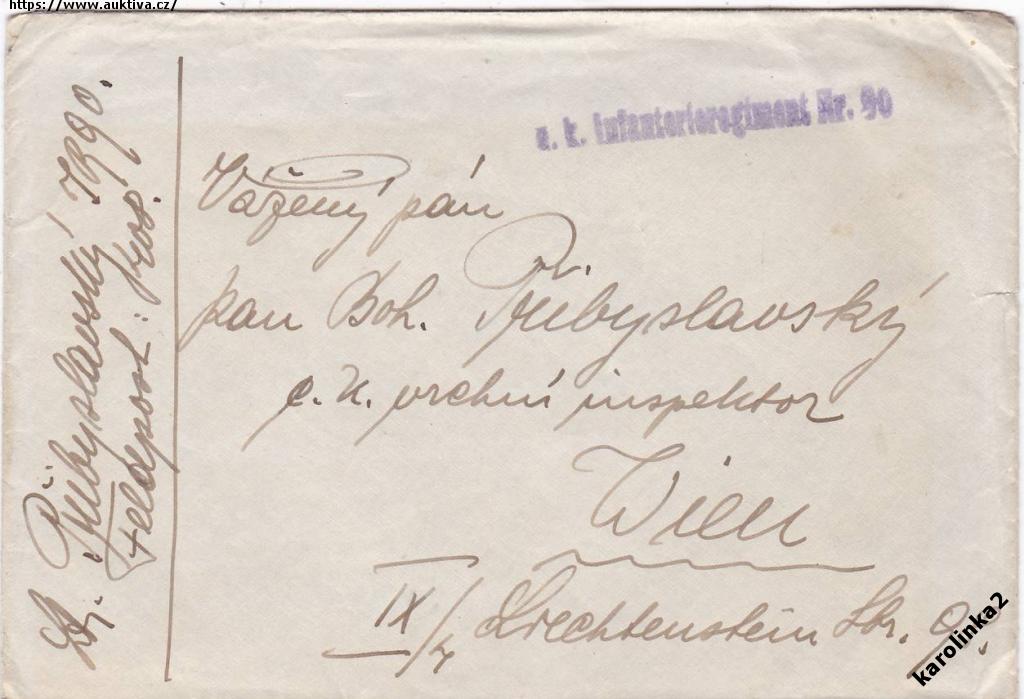 https://www.auktiva.cz/
k. k. Infanterieregiment Nr. 90
Vážený pán
pan Boh. Přibyslavský
c. k. vrchní inspektor
Wien
IX/4 Liechtenstein Str.
Přibyslavský
Feldpost:
karolinka2